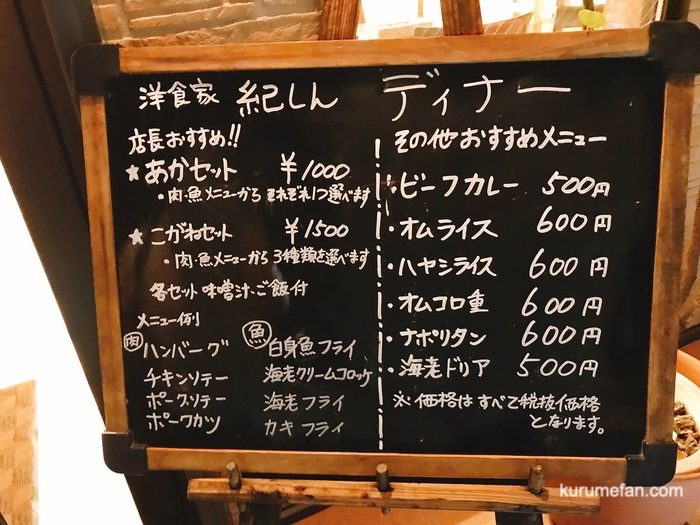 洋食家 紀しん ディナー
店長おすすめ!!
★あかセット ¥1000
・肉・魚メニューから それぞれ1つ選べます
★こがねセット ¥1500
・肉・魚メニューから 3種類を選べます
各セット味噌汁、ご飯付
メニュー例
肉
ハンバーグ
チキンソテー
ポークソテー
ポークカツ
魚
白身魚フライ
海老クリームコロッケ
海老フライ
カキフライ
その他おすすめメニュー
・ビーフカレー 500円
・オムライス 600円
・ハヤシライス 600円
・オムコロ重 600円
・ナポリタン 600円
・海老ドリア 500円
※価格はすべて税抜価格
となります。
kurumefan.com